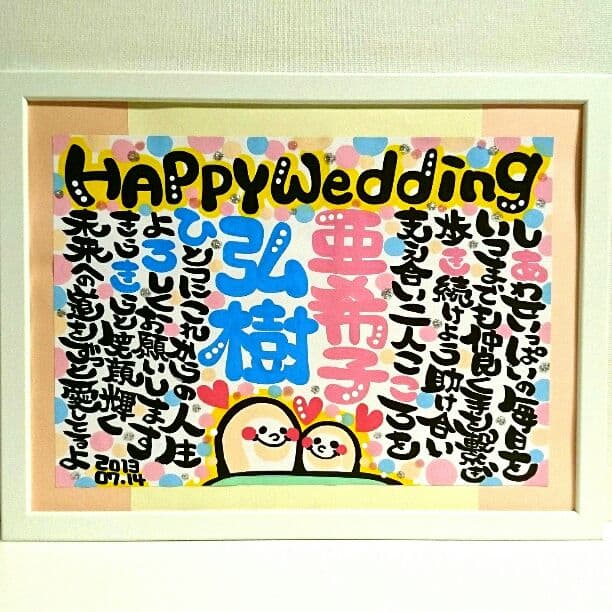 HAPPy Wedding
しあわせいっぱいの毎日を
いつまでも仲良く手を繋ぎ
歩き続けよう助け合い
支え合い二人こころを
亜希子
弘樹
ひとつにこれからの人生
よろしくお願いします
きらきらと笑顔輝く
未来への道もずっと愛しとるよ
2013
07.14